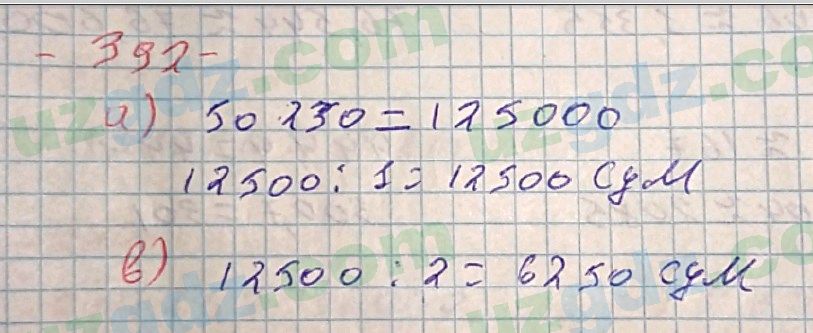 - 392 -
а) 50 250 = 125000
12500 : 1 = 12500 сум
в) 12500 : 2 = 6250 сум
uzgdz.com